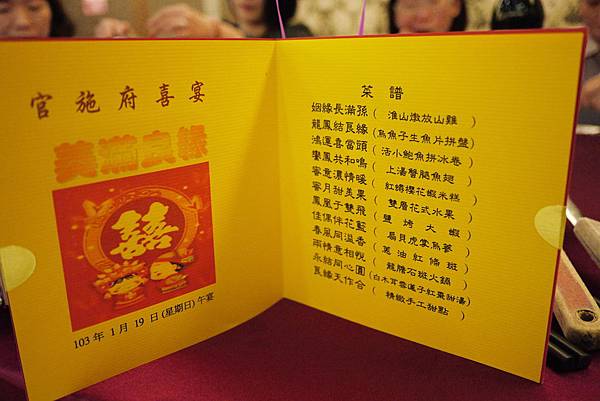 官施府喜宴
美滿良緣
囍
103年1月19日(星期日)午宴
菜譜
姻緣長滿孫(淮山燉放山雞)
龍鳳結良緣(烏魚子生魚片拼盤)
鴻運喜當頭(活小鮑魚拼冰卷)
鸞鳳共和鳴(上湯腎腿魚翅)
蜜意濃情暖(紅蟳櫻花蝦米糕)
蜜月甜美果(雙層花式水果)
鳳凰于雙飛(鹽烤大蝦)
佳偶伴花籃(扇貝虎掌魚蔘)
春風同溢香(蔥油紅條斑)
兩情意相悅(龍膽石斑火鍋)
永結同心圓(白木耳雪蓮子紅棗甜湯)
良緣天作合(精緻手工甜點)